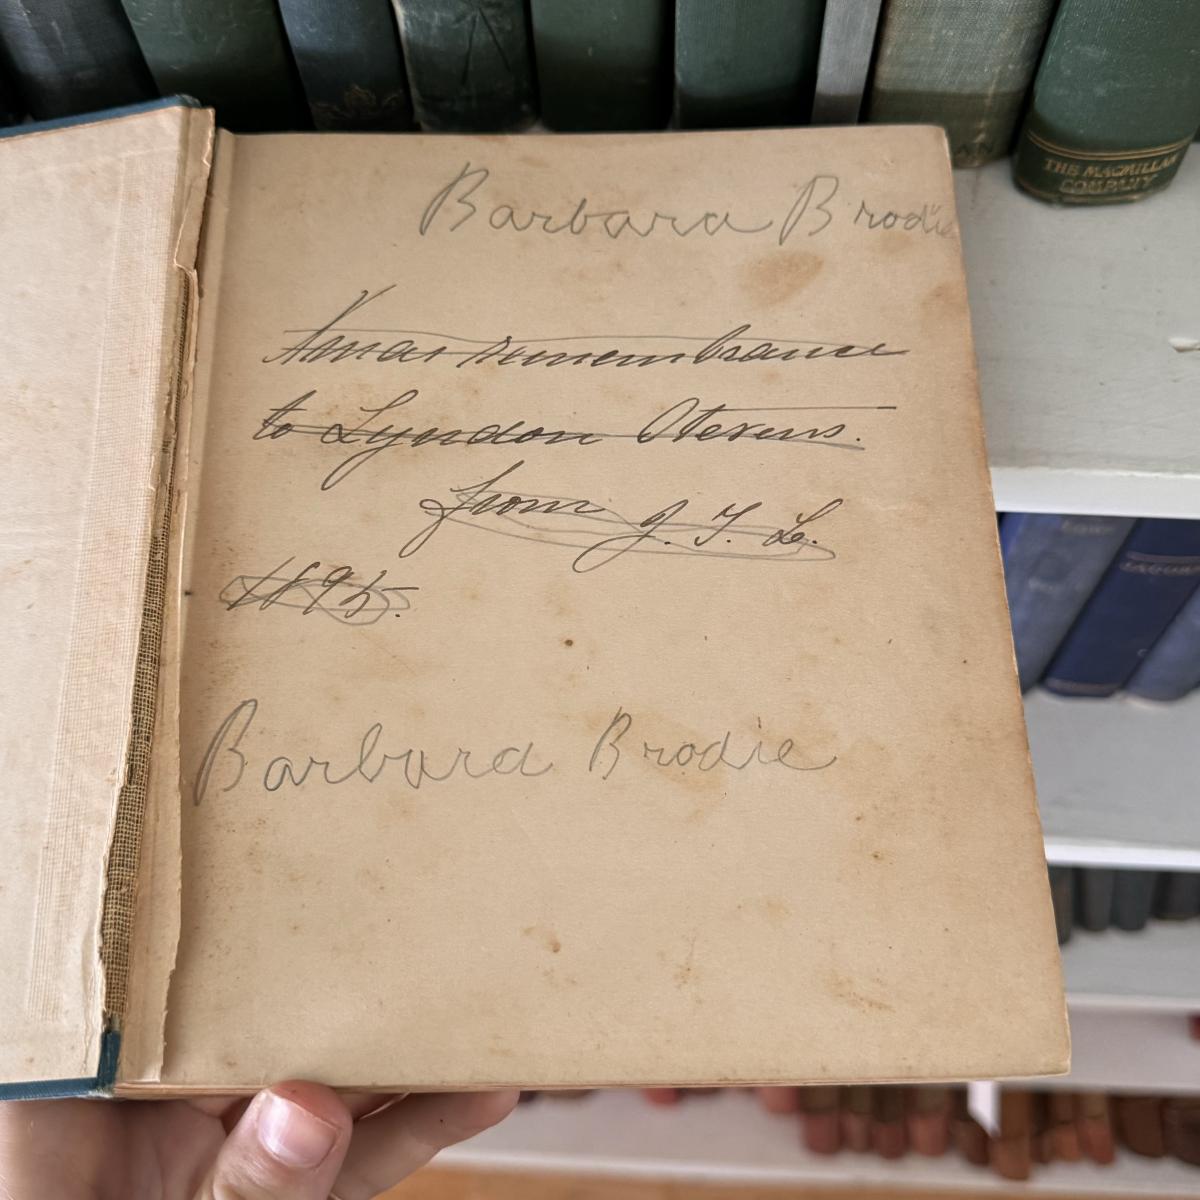 THE MACMILLAN
COMPANY
Barbara Brodie
Xmas remembrance
to Lyndon Stevens.
from J. T. L.
1895.
Barbara Brodie